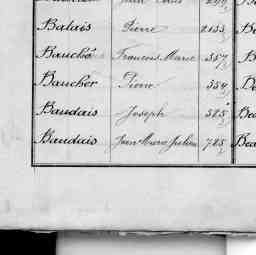 Balais Pierre 2133
Bauché François Marie 357
Baucher Pierre 354
Baudais Joseph 525
Baudais Jean Marie Julien 785